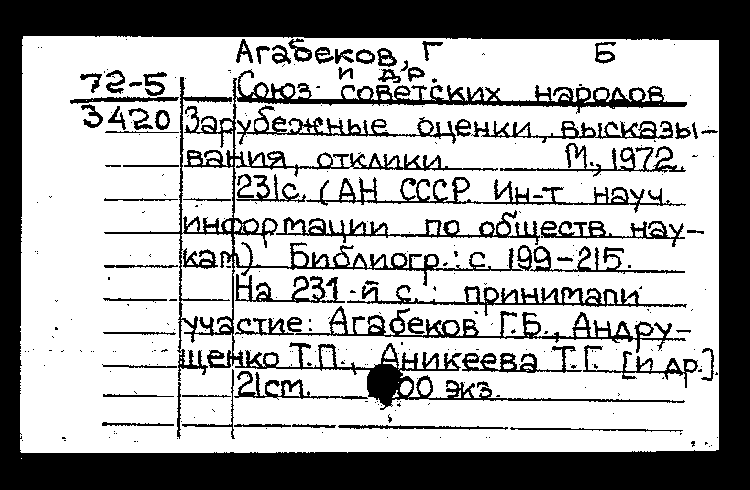 Агабеков, Г Б
и др.
72-5 Союз советских народов
3420 Зарубежные оценки, высказы-
вания, отклики. М., 1972.
231с. (АН СССР. Ин-т науч.
информации по обществ. нау-
кам). Библиогр.: с. 199-215.
На 231-й с.: принимали
участие: Агабеков Г.Б., Андру-
щенко Т.П., Аникеева Т.Г. [и др.]
21см. 00 экз.